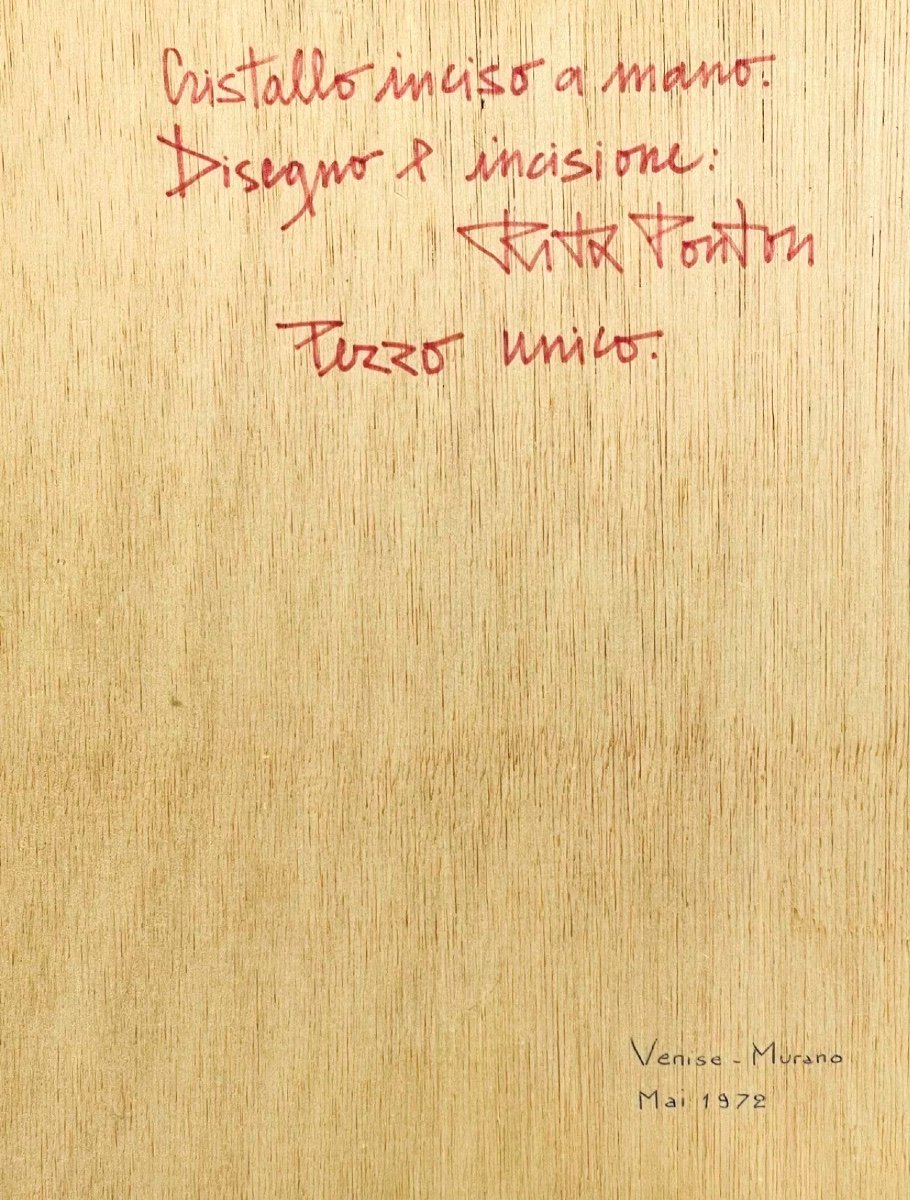 Cristallo inciso a mano.
Disegno e incisione:
Rita Ponton
Pezzo unico.
Venise - Murano
Mai 1972